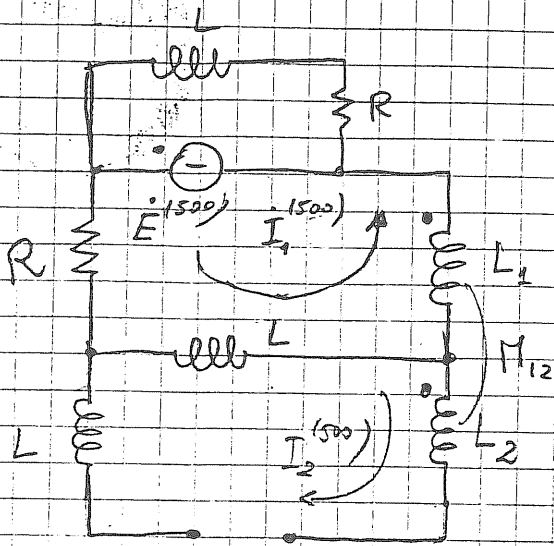 L
R
Ė(500) İ₁(500)
R
L₁
L
M₁₂
L
I₂(500)
L₂